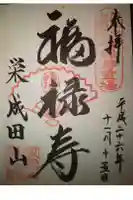 奉拝
平成二十六年
十一月十五日
福禄寿
成田山